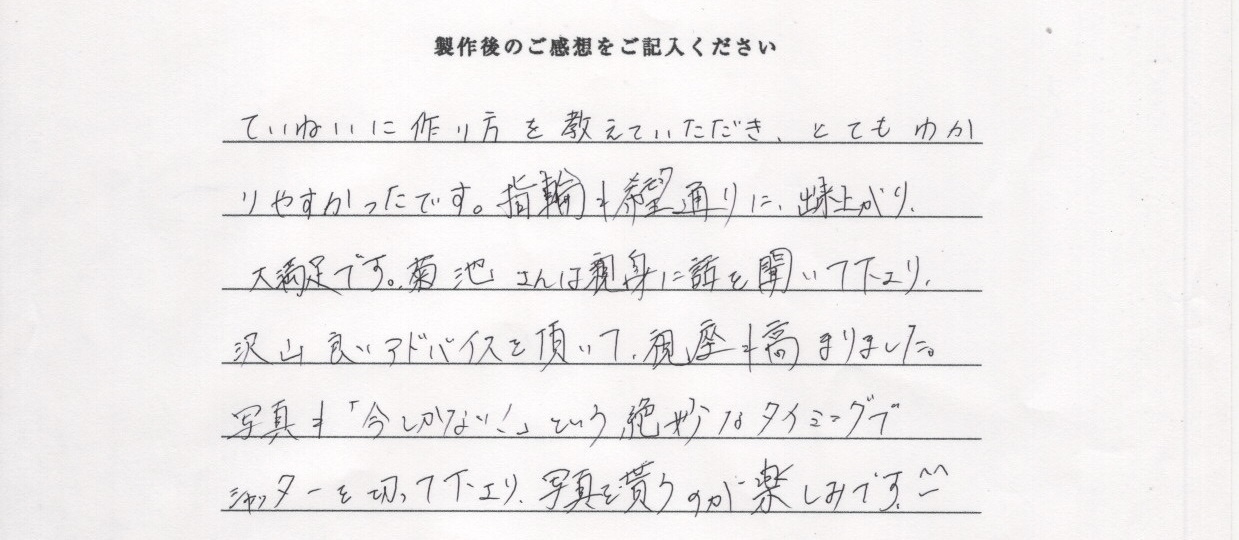 製作後のご感想をご記入ください
ていねいに作り方を教えていただき、とてもわか
りやすかったです。指輪も希望通りに、出来上がり、
大満足です。菊池さんは親身に話を聞いて下さり、
沢山良いアドバイスを頂いて、視座も高まりました。
写真も「今しかない!」という絶妙なタイミングで
シャッターを切って下さり、写真を貰うのが楽しみです。^^